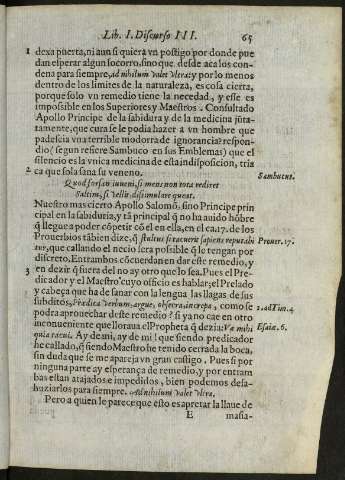 Lib. I. Discurso III. 65
1 dexa puerta, ni aun si quiera vn postigo por donde pue
dan esperar algun socorro, sino que desde aca los con-
dena para siempre, ad nihilum valet vltra: y por lo menos
dentro de los limites de la naturaleza, es cosa cierta,
porque solo vn remedio tiene la necedad, y esse es
impossible en los Superiores y Maestros. Consultado
Apollo Principe de la sabidura y de la medicina jūta-
tamente, que cura se le podia hazer a vn hombre que
padescia vna terrible modorra de ignorancia? respon-
dio (segun refiere Sambuco en sus Emblemas) que el
silencio es la vnica medicina de esta indisposicion, tria
2 ca que sola sana su veneno.
Sambucus.
Quod forsan iuueni, si mens non tota rediret
Saltim, si vellit, dissimulare queat.
Nuestro mas cierto Apollo Salomō, sino Principe prin
cipal en la sabiduria, y tā principal q̄ no ha auido hōbre
q̄ llegue a poder cōpetir cō el en ella, en el ca. 17. de los
Prouerbios tābien dize, q̄ stultus si tacuerit sapiens reputabi
Prouer. 17.
tur, que callando el necio sera possible q̄ le tengan por
discreto. Entrambos cōcuerdan en dar este remedio, y
3 en dezir q̄ fuera del no ay otro que lo sea. Pues el Pre-
dicador y el Maestro cuyo officio es hablar; el Prelado
y cabeça que ha de sanar con la lengua las llagas de sus
subditos, Prædica verbum, argue, obsecra, increpa, como se
2. ad Tim. 4
podra aprouechar deste remedio? si ya no cae en otro
inconueniente que lloraua el Propheta q̄ dezia: Væ mihi
Esaiæ. 6.
quia tacui. Ay de mi, ay de mi! que siendo predicador
he callado, q̄ siendo Maestro he tenido cerrada la boca,
sin duda que se me apareja vn gran castigo. Pues si por
ninguna parte ay esperança de remedio, y por entram
bas estan atajados e impedidos, bien podemos desa-
huziarlos para siempre. Ad nihilum valet vltra.
Pero a quien le parece que esto es apretar la llaue de
E masia-